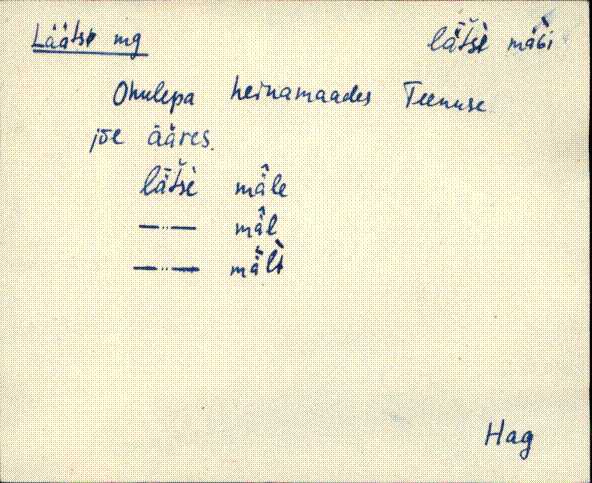 Läätse mg lä̆tsè mäGì
Ohulepa heinamaades Teenuse
jõe ääres.
lä̆tsè mä̂le
—··— mä̂l
—··— mä̆lt
Hag